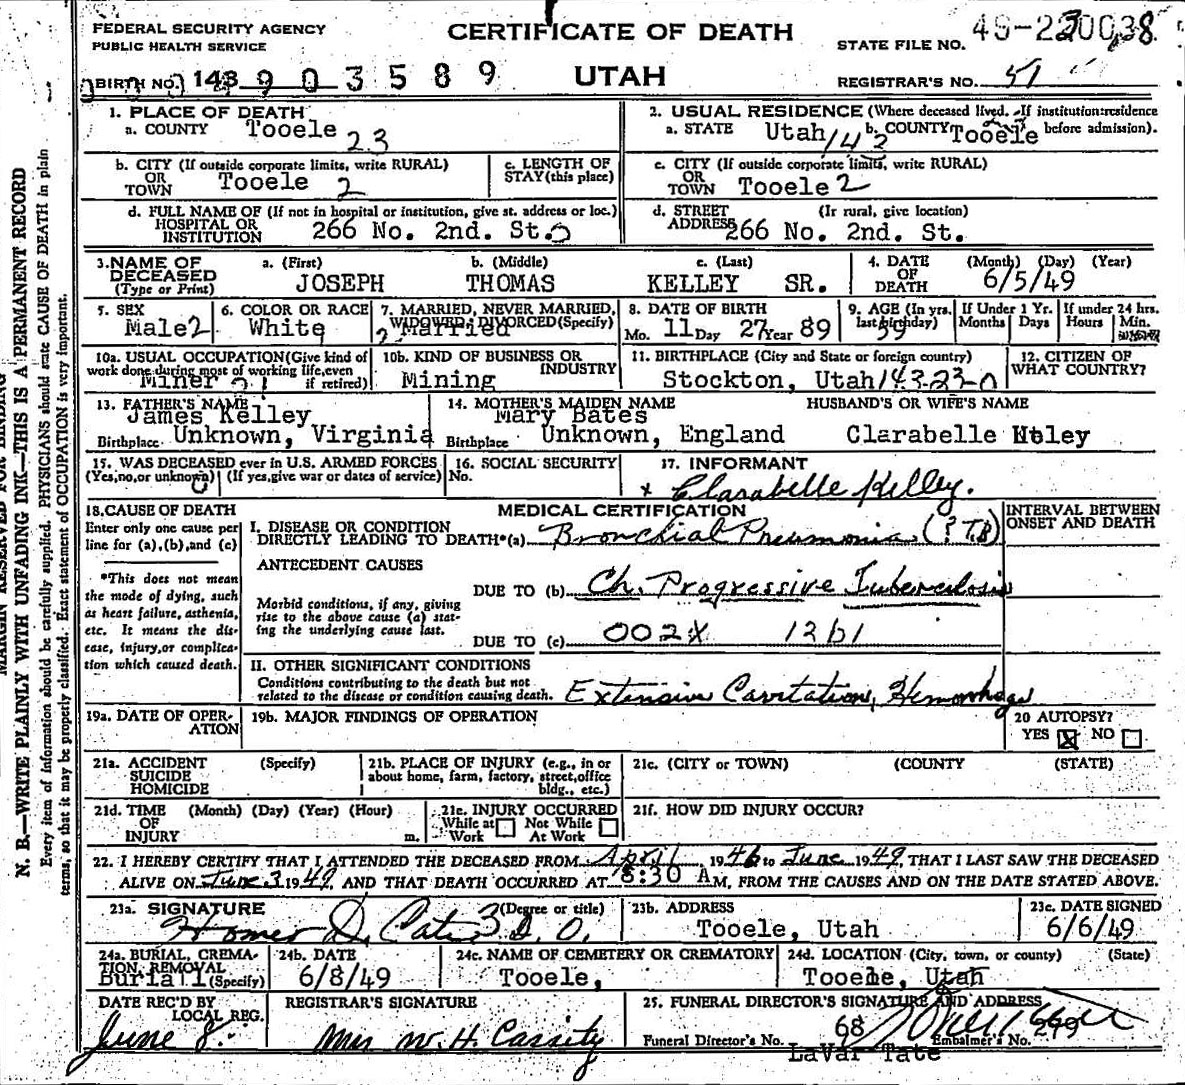 FEDERAL SECURITY AGENCY
PUBLIC HEALTH SERVICE
CERTIFICATE OF DEATH
STATE FILE NO. 49-230038
BIRTH NO. 143 903589
UTAH
REGISTRAR'S NO. 51
1. PLACE OF DEATH
a. COUNTY Tooele 23
2. USUAL RESIDENCE (Where deceased lived. If institution:residence before admission).
a. STATE Utah 142 b. COUNTY Tooele
b. CITY (If outside corporate limits, write RURAL) OR TOWN Tooele 2
c. LENGTH OF STAY (this place)
c. CITY (If outside corporate limits, write RURAL) OR TOWN Tooele 2
d. FULL NAME OF (If not in hospital or institution, give st. address or loc.) HOSPITAL OR INSTITUTION 266 No. 2nd. St.
d. STREET ADDRESS (Ir rural, give location) 266 No. 2nd. St.
3. NAME OF DECEASED (Type or Print)
a. (First) JOSEPH
b. (Middle) THOMAS
c. (Last) KELLEY SR.
4. DATE OF DEATH (Month) (Day) (Year) 6/5/49
5. SEX Male 2
6. COLOR OR RACE White
7. MARRIED, NEVER MARRIED, WIDOWED, DIVORCED (Specify) Married
8. DATE OF BIRTH Mo. 11 Day 27 Year 89
9. AGE (In yrs. last birthday) 59
If Under 1 Yr. Months Days
If under 24 hrs. Hours Min.
10a. USUAL OCCUPATION (Give kind of work done during most of working life, even if retired) Miner
10b. KIND OF BUSINESS OR INDUSTRY Mining
11. BIRTHPLACE (City and State or foreign country) Stockton, Utah 143-23-0
12. CITIZEN OF WHAT COUNTRY?
13. FATHER'S NAME James Kelley
Birthplace Unknown, Virginia
14. MOTHER'S MAIDEN NAME Mary Bates
Birthplace Unknown, England
HUSBAND'S OR WIFE'S NAME
Clarabelle
15. WAS DECEASED ever in U.S. ARMED FORCES (Yes, no, or unknown) (If yes, give war or dates of service)
16. SOCIAL SECURITY No.
17. INFORMANT
x Clarabelle Kelley.
18. CAUSE OF DEATH
Enter only one cause per line for (a), (b), and (c)
*This does not mean the mode of dying, such as heart failure, asthenia, etc. It means the disease, injury, or complication which caused death.
MEDICAL CERTIFICATION
INTERVAL BETWEEN ONSET AND DEATH
I. DISEASE OR CONDITION DIRECTLY LEADING TO DEATH*(a) Bronchial Pneumonia (? TB)
ANTECEDENT CAUSES
DUE TO (b) Ch. Progressive Tuberculosis
Morbid conditions, if any, giving rise to the above cause (a) stating the underlying cause last.
DUE TO (c) 002X 1261
II. OTHER SIGNIFICANT CONDITIONS
Conditions contributing to the death but not related to the disease or condition causing death. Extensive Cavitation, Hemorrhage
19a. DATE OF OPERATION
19b. MAJOR FINDINGS OF OPERATION
20 AUTOPSY?
YES X NO
21a. ACCIDENT SUICIDE HOMICIDE (Specify)
21b. PLACE OF INJURY (e.g., in or about home, farm, factory, street, office bldg., etc.)
21c. (CITY or TOWN) (COUNTY) (STATE)
21d. TIME OF INJURY (Month) (Day) (Year) (Hour) m.
21e. INJURY OCCURRED While at Work Not While At Work
21f. HOW DID INJURY OCCUR?
22. I HEREBY CERTIFY THAT I ATTENDED THE DECEASED FROM April 1946 to June 1949, THAT I LAST SAW THE DECEASED
ALIVE ON June 3 1949, AND THAT DEATH OCCURRED AT 8:30 A M, FROM THE CAUSES AND ON THE DATE STATED ABOVE.
23a. SIGNATURE (Degree or title) Homer D. D.O.
23b. ADDRESS Tooele, Utah
23c. DATE SIGNED 6/6/49
24a. BURIAL, CREMATION, REMOVAL (Specify) Buriall
24b. DATE 6/8/49
24c. NAME OF CEMETERY OR CREMATORY Tooele,
24d. LOCATION (City, town, or county) (State) Tooele, Utah
DATE REC'D BY LOCAL REG. June 8
REGISTRAR'S SIGNATURE Mrs W. H. Cassity
25. FUNERAL DIRECTOR'S SIGNATURE AND ADDRESS
Funeral Director's No. 68 Embalmer's No. 299
LaVar Tate
N. B.—WRITE PLAINLY WITH UNFADING INK—THIS IS A PERMANENT RECORD
Every item of information should be carefully supplied. PHYSICIANS should state CAUSE OF DEATH in plain
terms, so that it may be properly classified. Exact statement of OCCUPATION is very important.